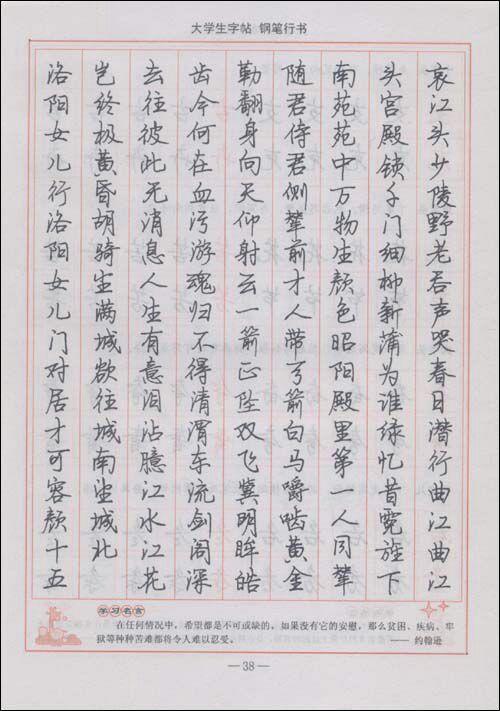 大学生字帖 钢笔行书
哀江头少陵野老吞声哭春日潜行曲江曲江
头宫殿锁千门细柳新蒲为谁绿忆昔霓旌下
南苑苑中万物生颜色昭阳殿里第一人同辇
随君侍君侧辇前才人带弓箭白马嚼啮黄金
勒翻身向天仰射云一箭正坠双飞翼明眸皓
齿今何在血污游魂归不得清渭东流剑阁深
去往彼此无消息人生有意泪沾臆江水江花
岂终极黄昏胡骑尘满城欲往城南望城北
洛阳女儿行洛阳女儿门对居才可容颜十五
学习名言
在任何情况中，希望都是不可或缺的，如果没有它的安慰，那么贫困、疾病、牢
狱等种种苦难都将令人难以忍受。 —— 约翰逊
— 38 —